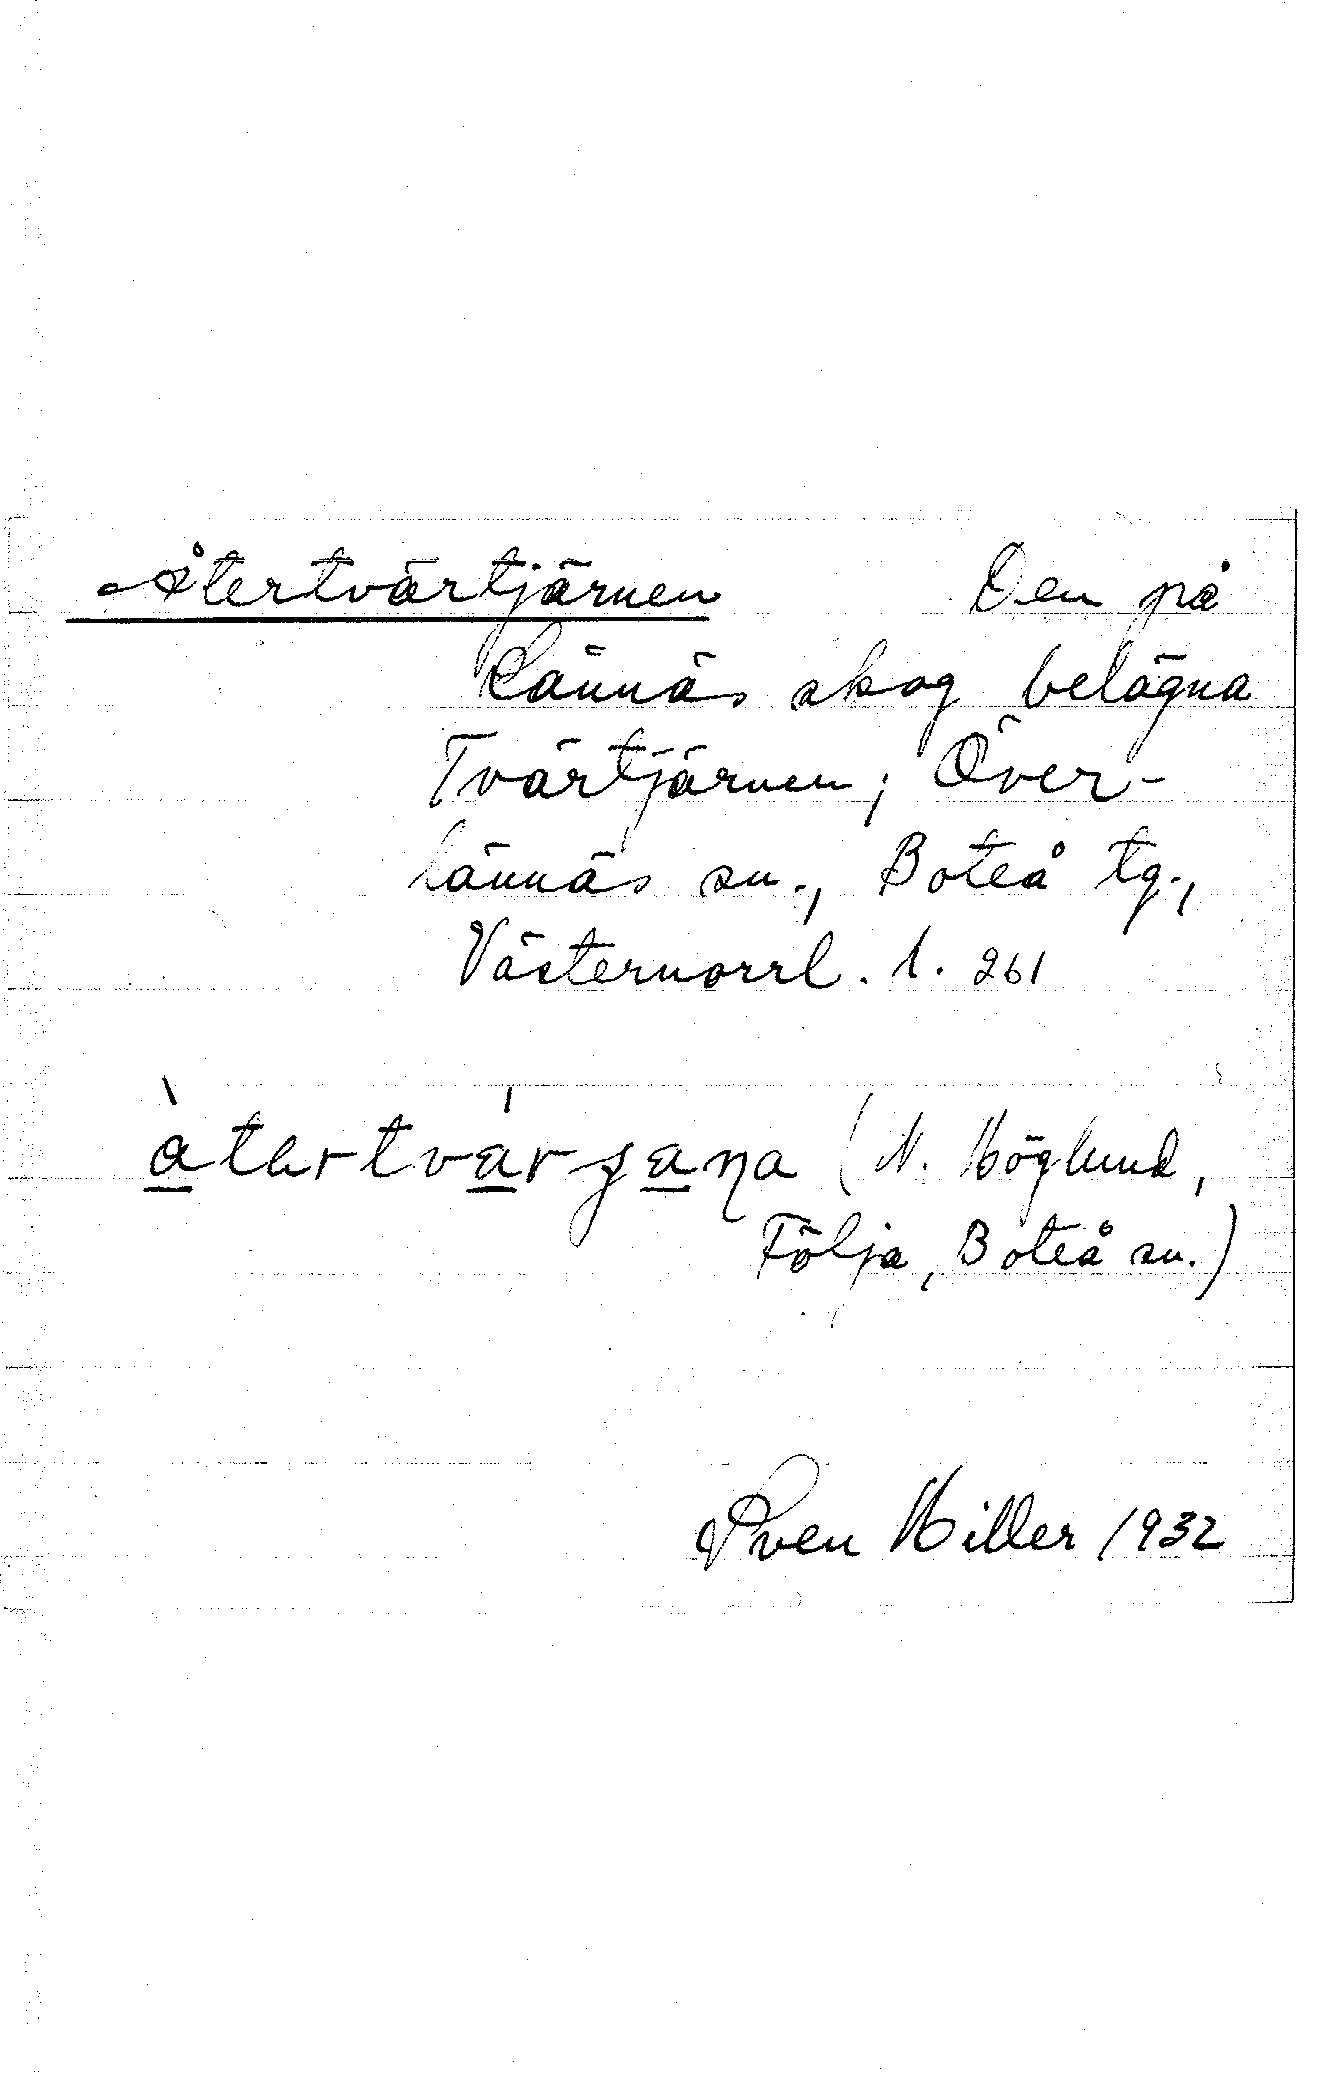 Återtvärtjärnen Den på
Lännäs skog belägna
Tvärtjärnen; Över-
lännäs sn., Boteå tg.,
Västernorrl. l. 261
(N. Höglund,
Följa, Boteå sn.)
Sven Hiller 1932